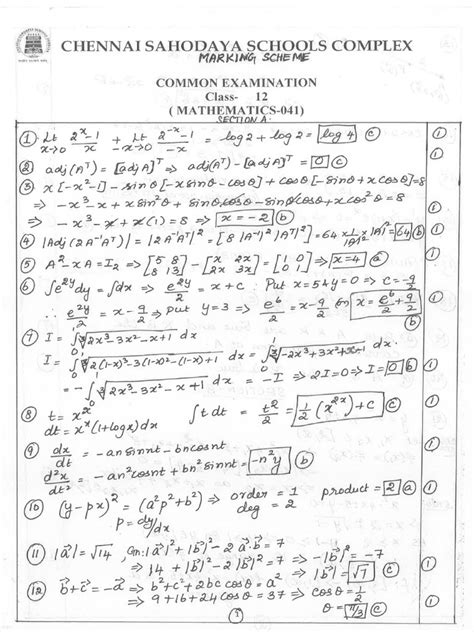 CHENNAI SAHODAYA SCHOOLS COMPLEX
MARKING SCHEME
COMMON EXAMINATION
Class- 12
( MATHEMATICS-041)
SECTION A.
① Lt x→0 (2^x-1)/x + Lt x→0 (2^-x-1)/-x = log2 + log2 = log 4 ⓒ 1
② adj(A^T) = [adj A]^T ⇒ adj(A^T) - [adj A]^T = 0 ⓒ 1
③ x[-x²-1] - sinθ[-x sinθ - cosθ] + cosθ[-sinθ + x cosθ] = 8
⇒ -x³ - x + x sin²θ + sinθ cosθ - sinθ cosθ + x cos²θ = 8
⇒ -x³ - x + x(1) = 8 ⇒ x = -2 ⓑ 1
④ |Adj (2A⁻¹A^T)| = |2A⁻¹A^T|² = [8 |A⁻¹| |A^T|]² = 64 × 1/|A|² × |A|² = 64 ⓑ 1
⑤ A² - xA = I₂ ⇒ [5 8; 8 13] - [x 2x; 2x 3x] = [1 0; 0 1] ⇒ x = 4 ⓐ 1
⑥ ∫e^2y dy = ∫dx ⇒ e^2y/2 = x + c ∴ Put x = 5 & y = 0 ⇒ c = -9/2
∴ e^2y/2 = x - 9/2 ⇒ put y = 3 ⇒ e^6/2 = x - 9/2 or x = e^6/2 + 9/2 ⓑ 1
⑦ I = ∫₀¹ ∛(2x³-3x²-x+1) dx
I = ∫₀¹ ∛(2(1-x)³-3(1-x)²-(1-x)+1) dx = ∫₀¹ ∛(-2x³+3x²+x-1) dx
= -∫₀¹ ∛(2x³-3x²-x+1) dx = -I ⇒ 2I = 0 ⇒ I = 0 ⓑ 1
⑧ t = x^x ∫t dt = t²/2 = ½(x^2x) + c ⓒ 1
dt = x^x(1+logx)dx
⑨ dx/dt = -an sinnt - bn cosnt
d²x/dt² = -an² cosnt + bn² sinnt = -n²y ⓑ 1
⑩ (y-px)² = (a²p²+b²) ⇒ order = 1 product = 2 ⓐ 1
p = dy/dx deg = 2
⑪ |a⃗| = √14, |a⃗|² + |b⃗|² - 2 a⃗.b⃗ = 7
⇒ 14 + |b⃗|² - 2|b⃗|² = 7 ⇒ -|b⃗|² = -7
|b⃗| = √7 ⓒ 1
⑫ b⃗ + c⃗ = -a⃗ ⇒ b² + c² + 2bc cosθ = a²
⇒ 9 + 16 + 24 cosθ = 37 ⇒ cosθ = 1/2
θ = π/3 ⓒ 1